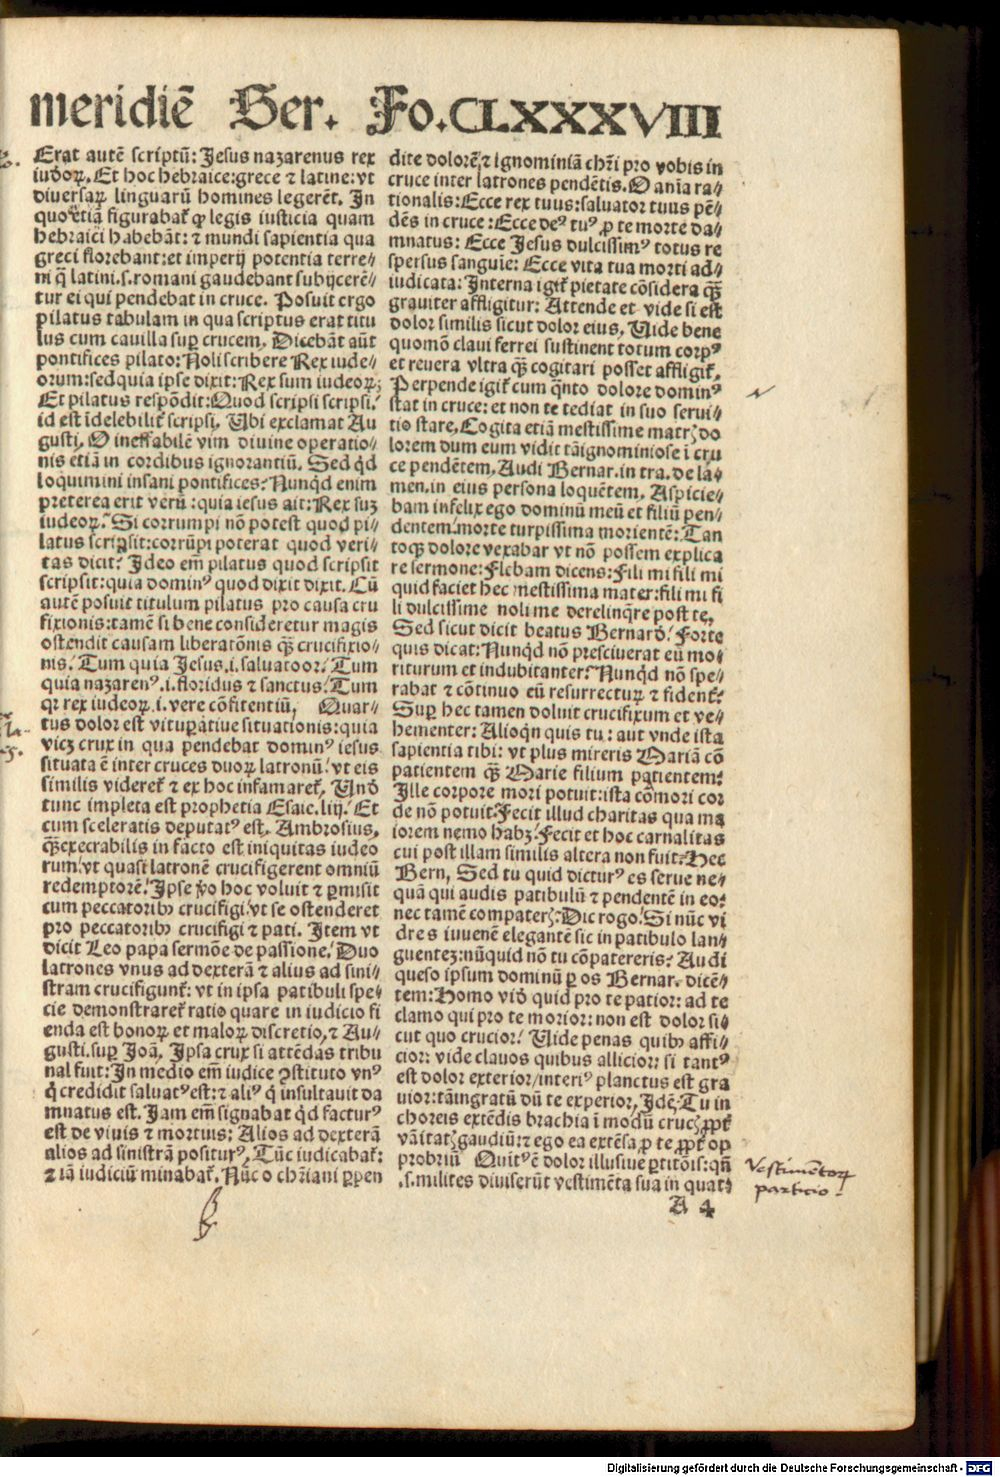 meridiē Ser. Fo.CLXXXVIII
Erat autē scriptū: Jesus nazarenus rex
iudoꝝ. Et hoc hebraice:grece ⁊ latine: vt
diversaꝝ linguarū homines legerēt. In
quo etiā figurabat̄ ꝙ legis iusticia quam
hebraici habebāt: ⁊ mundi sapientia qua
greci florebant: et imperij potentia terre⸗
ni q̄ latini.s.romani gaudebant subijcerē⸗
tur ei qui pendebat in cruce. Posuit ergo
pilatus tabulam in qua scriptus erat titu
lus cum cavilla suꝑ crucem. Dicebāt aūt
pontifices pilato: Noli scribere Rex iude⸗
orum:sed quia ipse dixit: Rex sum iudeoꝝ;
Et pilatus respōdit: Quod scripsi scripsi.
id est īdelebilit̄ scripsi. Ubi exclamat Au
gusti. O ineffabilē vim divine operatio⸗
nis etiā in cordibus ignorantiū. Sed qͥd
loquimini insani pontifices? Nunqͥd enim
preterea erit verū: quia iesus ait: Rex suꝫ
iudeoꝝ? Si corrumpi nō potest quod pi⸗
latus scripsit: corrūpi poterat quod veri⸗
tas dicit? Ideo em̄ pilatus quod scripsit
scripsit: quia dominꝰ quod dixit dixit. Cū
autē posuit titulum pilatus pro causa cru
fixionis: tamē si bene consideretur magis
ostendit causam liberatōnis qȝ̄ crucifixio⸗
nis. Tum quia Jesus.i.salvatoor. Tum
quia nazarenꝰ.i.floridus ⁊ sanctus. Tum
qꝛ rex iudeoꝝ.i.vere cōfitentiū. Quar⸗
tus dolor est vituꝑative situationis: quia
vicꝫ crux in qua pendebat dominꝰ iesus
situata ē inter cruces duoꝝ latronū: vt eis
similis videret̄ ⁊ ex hoc infamaret̄. Unđ
tunc impleta est prophetia Esaie. liij. Et
cum sceleratis deputatꝰ est. Ambrosius.
qȝ̄ execrabilis in facto est iniquitas iudeo
rum: vt quasi latronē crucifigerent omniū
redemptorē. Ipse ꝟo hoc voluit ⁊ ꝑmisit
cum peccatoribꝰ crucifigi: vt se ostenderet
pro peccatoribꝰ crucifigi ⁊ pati. Item vt
dicit Leo papa sermōe de passione. Duo
latrones vnus ad dexterā ⁊ alius ad sini⸗
stram crucifigunt̄: vt in ipsa patibuli spe⸗
cie demonstraret̄ ratio quare in iudicio fi
enda est bonoꝝ et maloꝝ discretio. ⁊ Au⸗
gusti. suꝑ Joā. Ipsa crux si attēdas tribu
nal fuit: In medio em̄ iudice ↄstituto vnꝰ
q̇ credidit salvatꝰ est: ⁊ aliꝰ q̇ insultavit da
mnatus est. Jam em̄ signabat qͥd facturꝰ
est de vivis ⁊ mortuis: Alios ad dexterā
alios ad sinistrā positurꝰ. Tūc iudicabat̄:
⁊ iā iudiciū minabat̄. Nūc o chr̄iani ꝑpen
dite dolorē ⁊ ignominiā chr̄i pro vobis in
cruce inter latrones pendētis. O anīa ra⸗
tionalis: Ecce rex tuus: salvator tuus pē⸗
dēs in cruce: Ecce deꝰ tuꝰ ꝓ te morte da⸗
mnatus: Ecce Jesus dulcissimꝰ totus re
spersus sanguīe: Ecce vita tua morti ad⸗
iudicata: Interna igit̄ pietate cōsidera qȝ̄
graviter affligitur: Attende et vide si est
dolor similis sicut dolor eius. Vide bene
quomō clavi ferrei sustinent totum corpꝰ
et revera vltra qȝ̄ cogitari posset affligit̄.
Perpende igit̄ cum qͣnto dolore dominꝰ
stat in cruce: et non te tediat in suo servi⸗
tio stare. Cogita etiā mestissime matrꝭ do
lorem dum eum vidit tā ignominiose ī cru
ce pendētem. Audi Bernar. in tra. de la⸗
men. in eius persona loquētem. Aspicie⸗
bam infelix ego dominū meū et filiū pen⸗
dentem: morte turpissima morientē: Tan
toqȝ dolore vexabar vt nō possem explica
re sermone: Flebam dicens: Fili mi fili mi
quid faciet hec mestissima mater: fili mi fi
li dulcissime noli me derelinq̄re post te.
Sed sicut dicit beatus Bernarđ. Forte
quis dicat: Nunqͥd nō presciverat eū mo⸗
riturum et indubitanter? Nunqͥd nō spe⸗
rabat ⁊ cōtinuo eū resurrecturꝝ ⁊ fident̄?
Suꝑ hec tamen doluit crucifixum et ve⸗
hementer: Alioqͥn quis tu: aut vnde ista
sapientia tibi: vt plus mireris Mariā cō
patientem qȝ̄ Marie filium patientem?
Ille corpore mori potuit: ista cōmori cor
de nō potuit. Fecit illud charitas qua ma
iorem nemo habꝫ: Fecit et hoc carnalitas
cui post illam similis altera non fuit: Hec
Bern. Sed tu quid dicturꝰ es serve ne⸗
quā qui audis patibulū ⁊ pendentē in eo:
nec tamē compaterꝭ: Dic rogo: Si nūc vi
dres iuvenē elegantē sic in patibulo lan⸗
guentez: nūquid nō tu cōpatereris? Audi
queso ipsum dominū ꝑ os Bernar. dicē⸗
tem: Homo viđ quid pro te patior: ad te
clamo qui pro te morior: non est dolor si⸗
cut quo crucior: Vide penas quibꝰ affi⸗
cior: vide clavos quibus allicior: si tantꝰ
est dolor exterior/interiꝰ planctus est gra
vior: tā ingratū dū te experior. Idē. Tu in
choreis extēdis brachia ī modū crucꝭ ꝓpt̄
vāitatꝭ gaudiū: ⁊ ego ea extēsa ꝓ te ꝓpt̄ op
probriū Quītꝰ ē dolor illusive ꝑtitōis: qn̄
.s. milites diviserūt vestimēta sua in quat:
Vestimētoꝝ
particio.
A 4